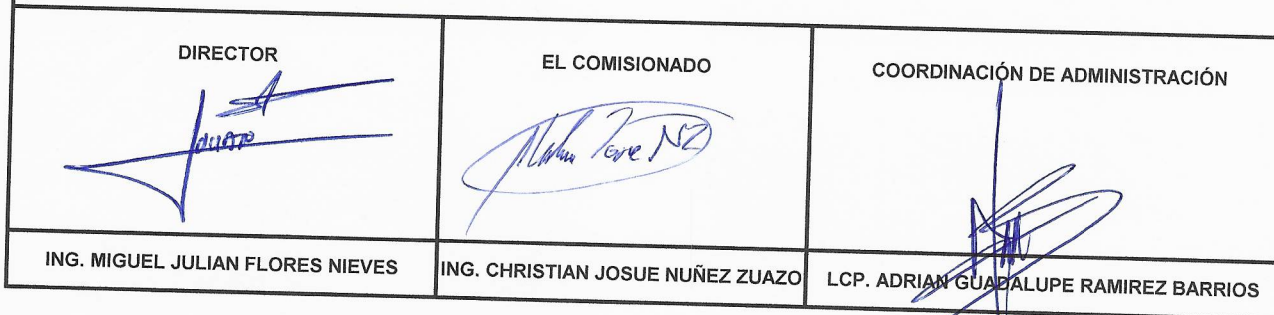 DIRECTOR
EL COMISIONADO
COORDINACIÓN DE ADMINISTRACIÓN
ING. MIGUEL JULIAN FLORES NIEVES
ING. CHRISTIAN JOSUE NUÑEZ ZUAZO
LCP. ADRIAN GUADALUPE RAMIREZ BARRIOS